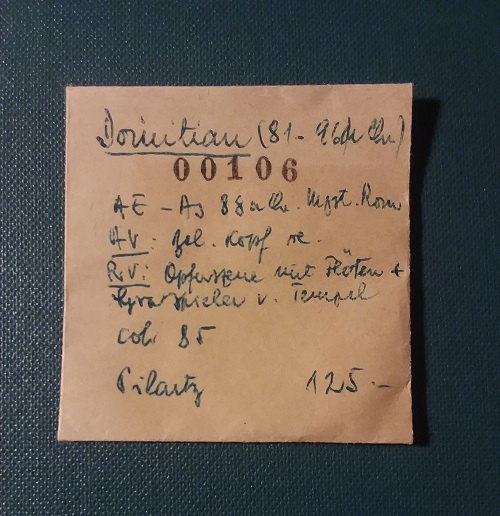 Domitian (81-96 n Chr)
00106
AE - As 88 n Chr. Mzst. Rom
AV: gel. Kopf re.
RV: Opferszene mit Flöten +
Lyraspieler v. Tempel
Coh 85
Pilartz 125.-